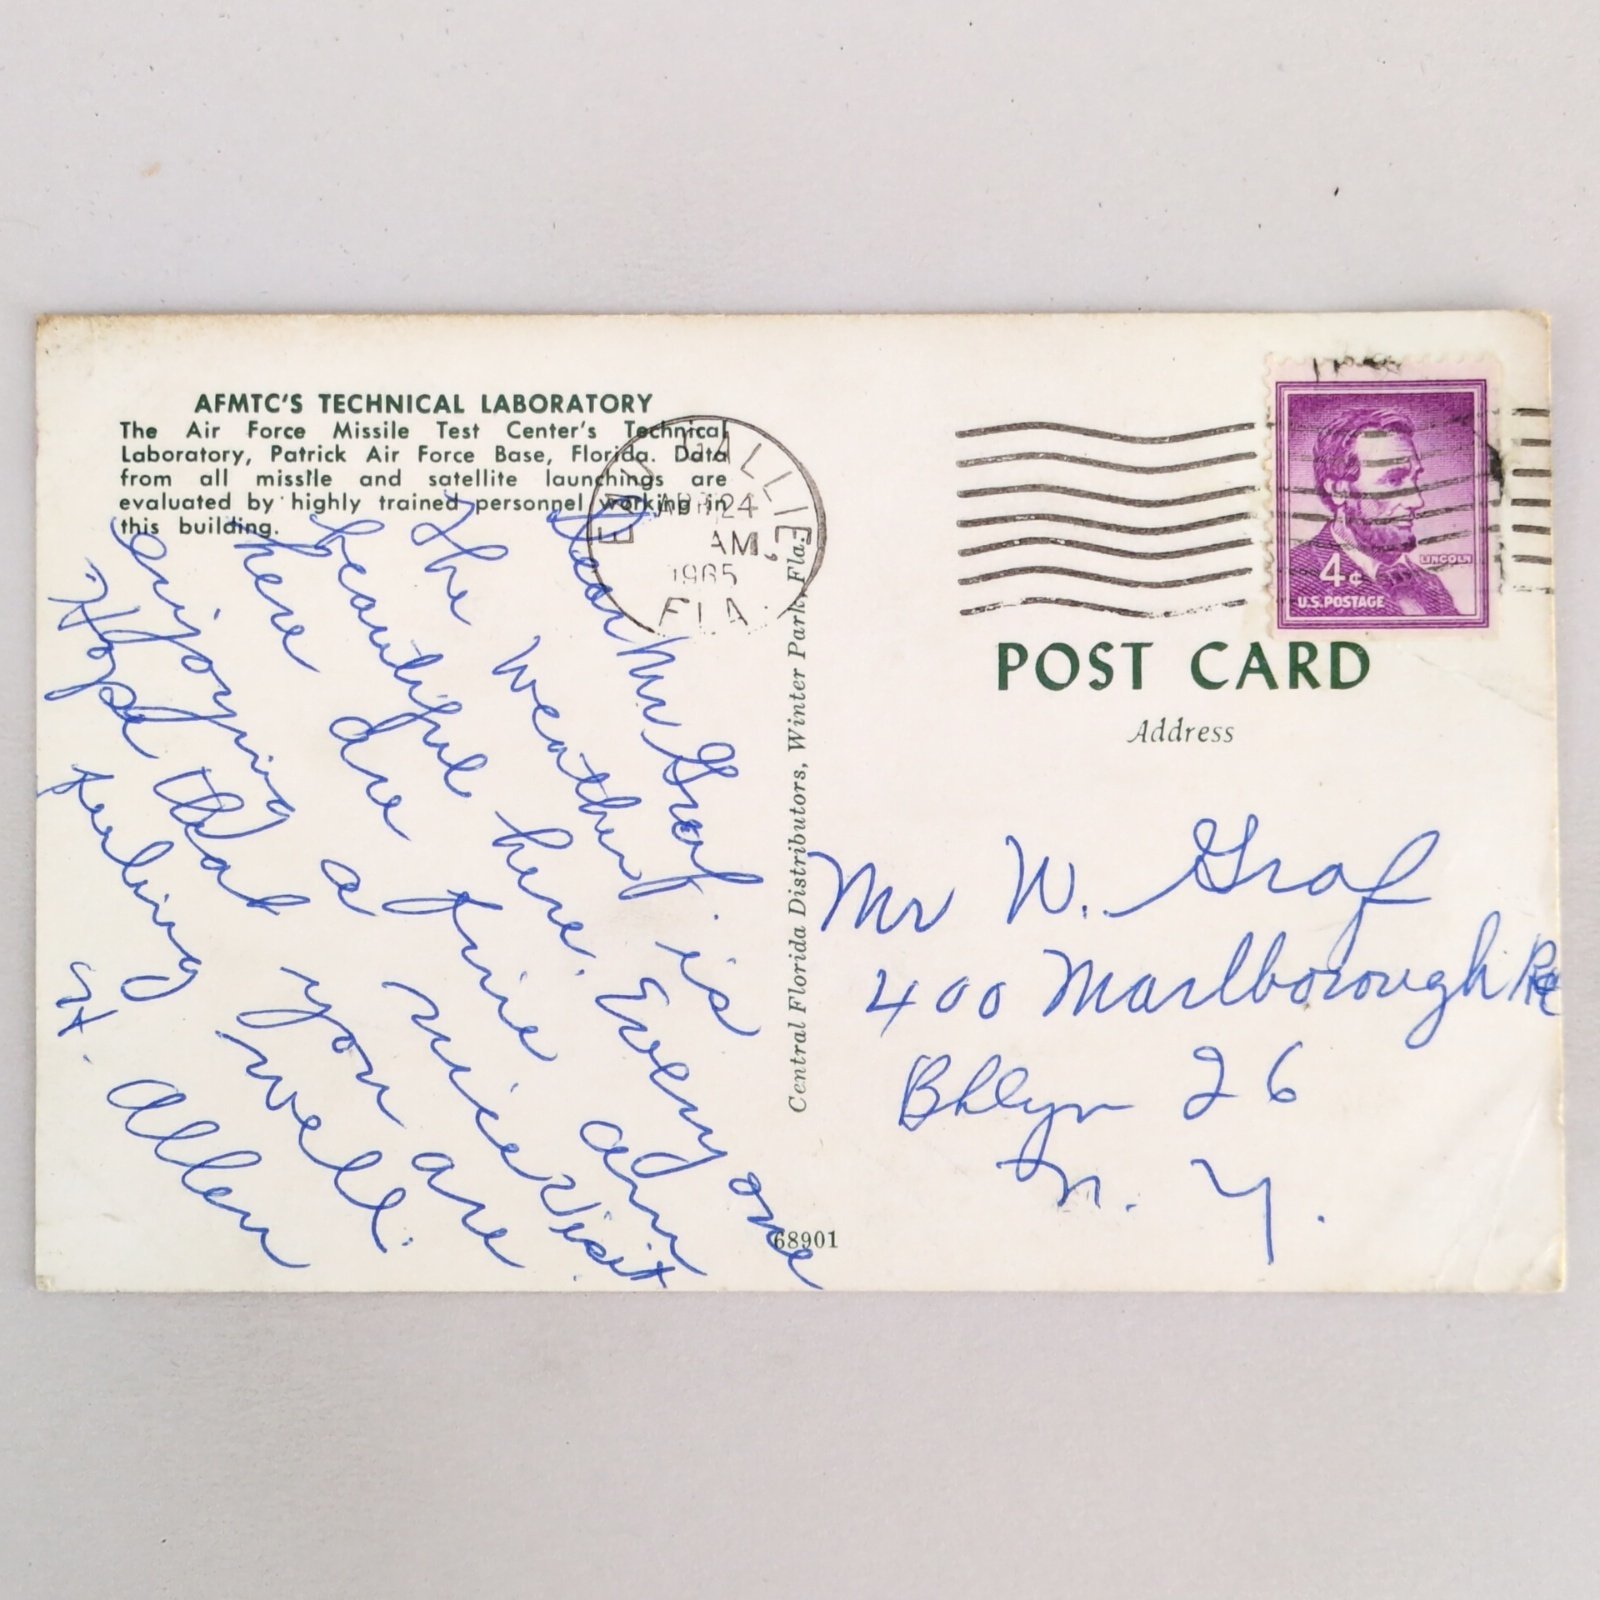 AFMTC'S TECHNICAL LABORATORY
The Air Force Missile Test Center's Technical
Laboratory, Patrick Air Force Base, Florida. Data
from all missile and satellite launchings are
evaluated by highly trained personnel working in
this building.
Dear Mr Graf.
The weather is
beautiful here. Every one
here are a fine
enjoying a nice visit
Hope that you are
feeling well.
H. Allen
Central Florida Distributors, Winter Park, Fla.
68901
EAU GALLIE,
APR 24
AM
1965
FLA.
4¢
LINCOLN
U.S. POSTAGE
POST CARD
Address
Mr W. Graf
400 Marlborough Rd
Bklyn 26
N. Y.